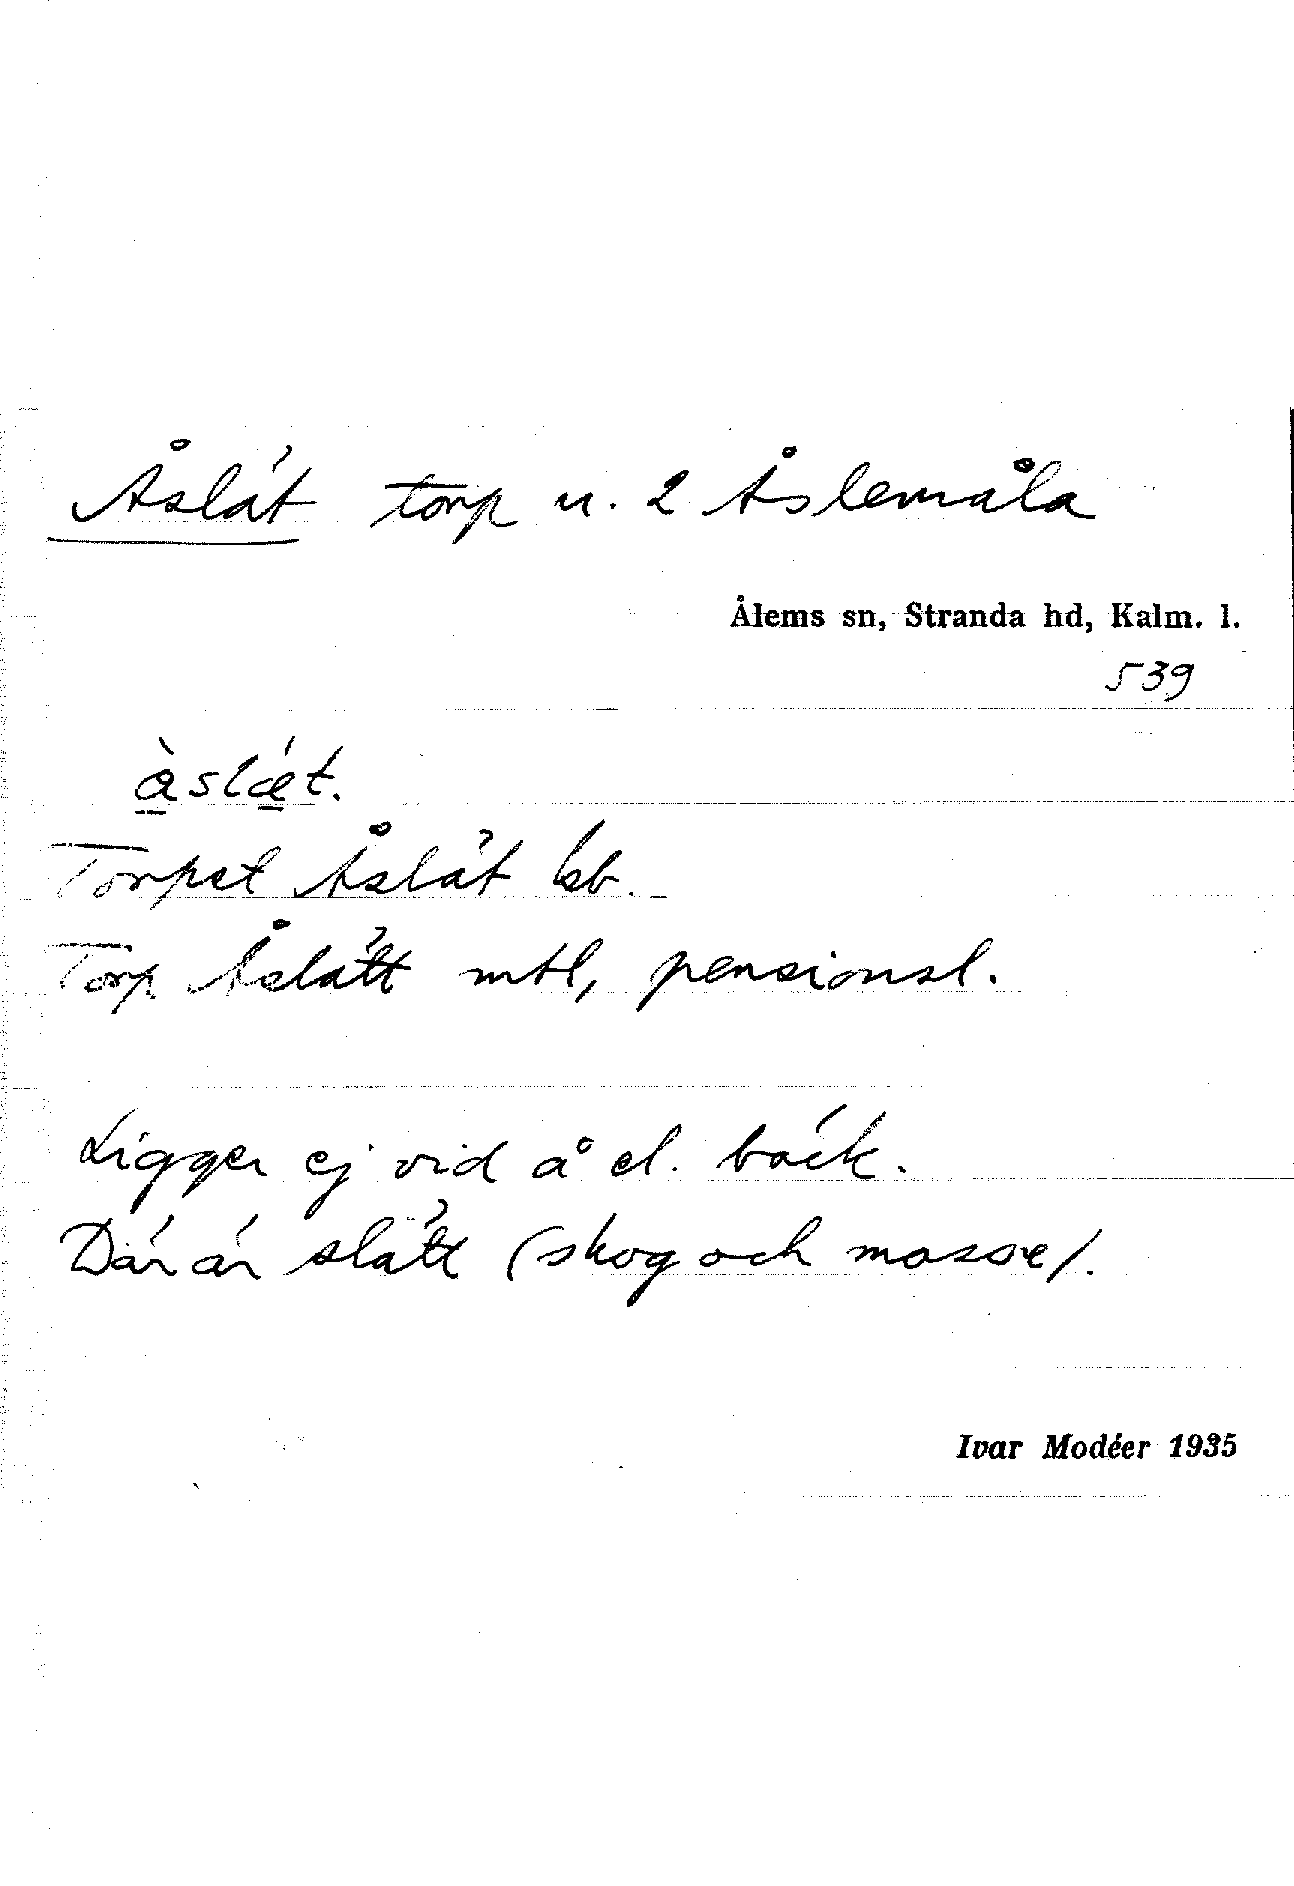 Åslät torp u. 2 Åslemåla
Ålems sn, Stranda hd, Kalm. l.
539
àslǽt.
Torpet Åslät kb.
Torp Åslätt mtl, pensionsl.
Ligger ej vid å el. bäck.
Där är slätt (skog och mosse).
Ivar Modéer 1935